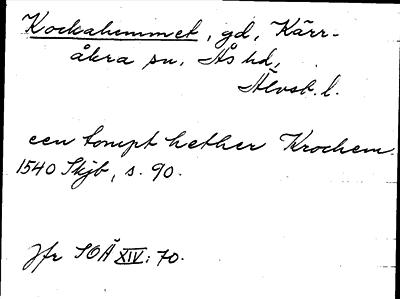 Kockahemmet, gd, Kärr-
åkra sn, Ås hd,
Älvsb. l.
een tompt hether Krochem.
1540 Skjb, s. 90.
Jfr SOÄ XIV: 70.